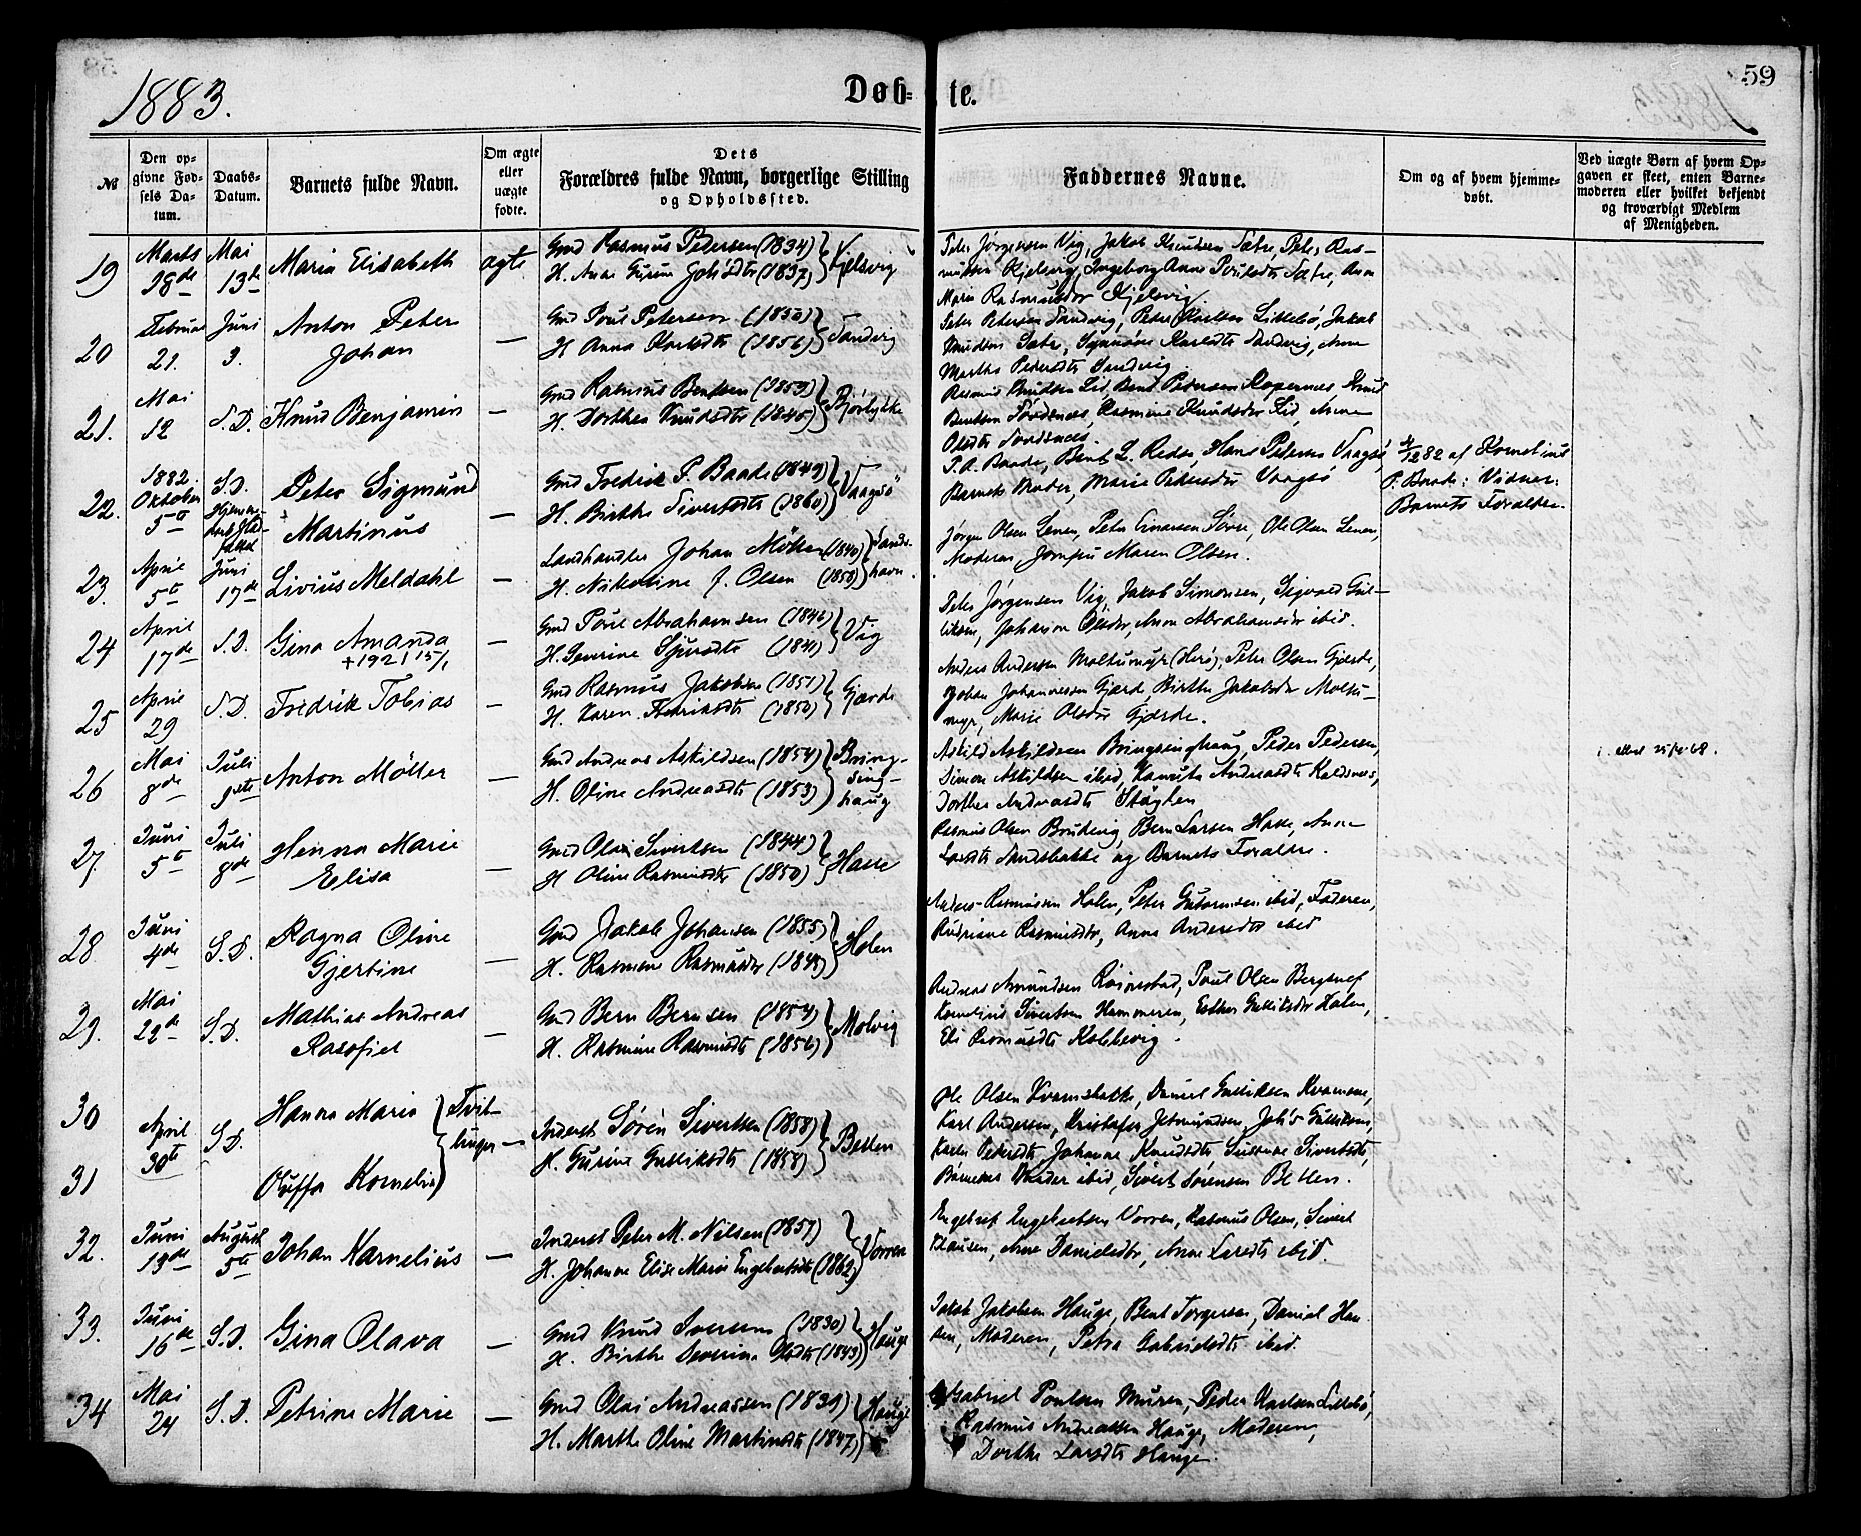 1883.
Døb=te.
59
№
Den op=
givne Fød=
sels Da=
tum.
Daabs=
Datum.
Barnets fulde Navn.
Om ægte
eller
uægte
fødte.
Dets
Forældres fulde Navn, borgerlige Stilling
og Opholdssted.
Faddernes Navne.
Om og af hvem hjemme=
døbt.
Ved uægte Børn af hvem Op=
gaven er skeet, enten Barne=
moderen eller hvilket bekjendt
og troværdigt Medlem
af Menigheden.
19
Marts
28de
Mai
13de
Maria Elisabeth
ægte
Gmd Rasmus Pedersen (1834)
H. Ane Gurine Johsdtr (1837)
Kjelsvig
Peter Jørgensen Vig, Jakob Knudsen Sætre, Peter Ras-
mussen Kjelsvig, Ingeborg Anne Poulsdtr Sætre, Ane
Marie Rasmusdtr Kjelsvig.
20
Februar
21.
Juni
3.
Anton Peter
Johan
—
Gmd Poul Petersen (1830)
H Anna Karlsdtr (1856)
Sandvig
Peter Petersen Sandvig, Peder Karlsen Lillebø, Jakob
Knudsen Sætre, Synnøve Karlsdtr Sandvig, Anne
Marthe Pedersdtr Sandvig
21.
Mai
12
S.D.
Knud Benjamin
—
Gmd Rasmus Bentsen (1859)
H. Dorthea Knudsdtr (1845)
Bjørlykke
Rasmus Knudsen Lid, Bent Pedersen Kopernes, Knud
Bentsen Sørdsnes, Rasmine Knudsdtr Lid, Anne
Olsdtr Sordsnes.
22.
1882
Oktober
5te
S.D.
Peter Sigmund
Martinus
—
Gmd Fredrik P. Baade (1849)
H. Birthe Sivertsdtr (1860)
Vaagsø
P. A. Baade, Bent L. Redse, Hans Petersen Vaagsø,
Barnets Moder, Marie Pedersdtr Vaagsø
4/12 82 af Kornelius
P. Baade: Vidner:
Barnets Forældre.
23.
April
5te
Juni
17de
Livius Meldahl
—
Landhandler Johan Møller (1840)
H. Nikoline f. Olsen (1850)
Sands-
havn.
Jørgen Olsen Leven, Peter Einarsen Sørre, Ole Olsen Leven,
Moderen, Jomfru Maren Olsen.
24
April
17de
S.D.
Gina Amanda
+1921 15/1
—
Gmd Poul Abrahamsen (1846)
H. Severine Sjursdtr (1841)
Vig
Peter Jørgensen Vig, Jakob Simonsen, Sigvald Gul-
liksen, Johanne Olsdtr, Anne Abrahamsdtr ibid.
25
April
29
S.D.
Fredrik Tobias
—
Gmd Rasmus Jakobsen (1851)
H. Karen Fredriksdtr (1850)
Gjærde
Anders Andersen Moltumyr (Herø), Peter Olsen Gjærde,
Johan Johannessen Gjærd, Birthe Jakobsdtr Moltu-
myr, Marie Olsdtr Gjærde.
26
Mai
8de
Juli
1ste
Anton Møller
—
Gmd Andreas Askildsen (1854)
H. Oline Andreasdtr (1853)
Bring-
sing-
haug
Askild Askildsen Bringsinghaug, Peder Pedersen,
Simon Askildsen ibid, Kanuta Andreasdtr Koldsnes,
Dorthea Andreasdtr
27.
Juni
5te
Juli
8de
Henna Marie
Elisa
—
Gmd Olai Sivertsen (1844)
H Oline Rasmusdtr (1850)
Hasse
Rasmus Olsen Brudevig, Bern Larsen Hasse, Anne
Larsdtr Sandsbakke og Barnets Forældre.
28.
Juni
4de
S.D.
Ragna Oline
Gjertine
—
Gmd Jakob Johansen (1855)
H. Rasmine Rasmusdtr (1848)
Holen
Anders Rasmussen Holen, Peter Guttormsen ibid, Faderen,
Rasmine Rasmusdtr, Anne Andersdtr ibid
29.
Mai
22de
S.D.
Mathias Andreas
Rasofiel
—
Gmd Bern Bernsen (1854)
H. Rasmine Rasmusdtr (1856)
Molvig
Andreas Amundsen Røinestad, Poul Olsen Bergsnef
Kornelius Sivertsen Hammeren, Esther Gulliksdtr Holen,
Eli Rasmusdtr Kobbevig.
30
31
April
30te
S.D.
Hanna Maria
Oluffa Kornelia
Tvil-
linger —
Inderst Sørèn Sivertsen (1858)
H. Gurine Gulliksdtr (1858)
Betten
Ole Olsen Kvamsbakke, Daniel Gulliksen Kvamme,
Karl Andersen, Kristofer Jetmundsen, Johs Gulliksen,
Karen Pedersdtr, Johanne Knudsdtr, Susanne Sivertsdtr,
Børnenes Moder ibid, Sivert Sørensen Betten.
32.
Juni
13de
August
5te
Johan Karnelius
—
Inderst Peter M. Nilsen (1857)
H. Johanne Elise Marie Engebretsdtr (1862)
Vorren
Engebret Engebretsen Vorren, Rasmus Olsen, Sivert
Klausen, Ane Danielsdtr, Anne Larsdtr ibid.
33.
Juni
16de
S.D.
Gina Olava
—
Gmd Knud Iversen (1830)
H. Birthe Severine Olsdtr (1843)
Hauge
Jakob Jakobsen Hauge, Bent Torgersen, Daniel Han
sen, Moderen, Petra Gabrielsdtr ibid.
34
Mai
24
S.D.
Petrine Marie
—
Gmd Olai Andreassen (1839)
H. Marthe Oline Martinsdtr (1847)
Hauge
Gabriel Poulsen Muren, Peder Karlsen Lillebø,
Rasmus Andreassen Hauge, Moderen,
Dorthe Larsdtr Hauge.